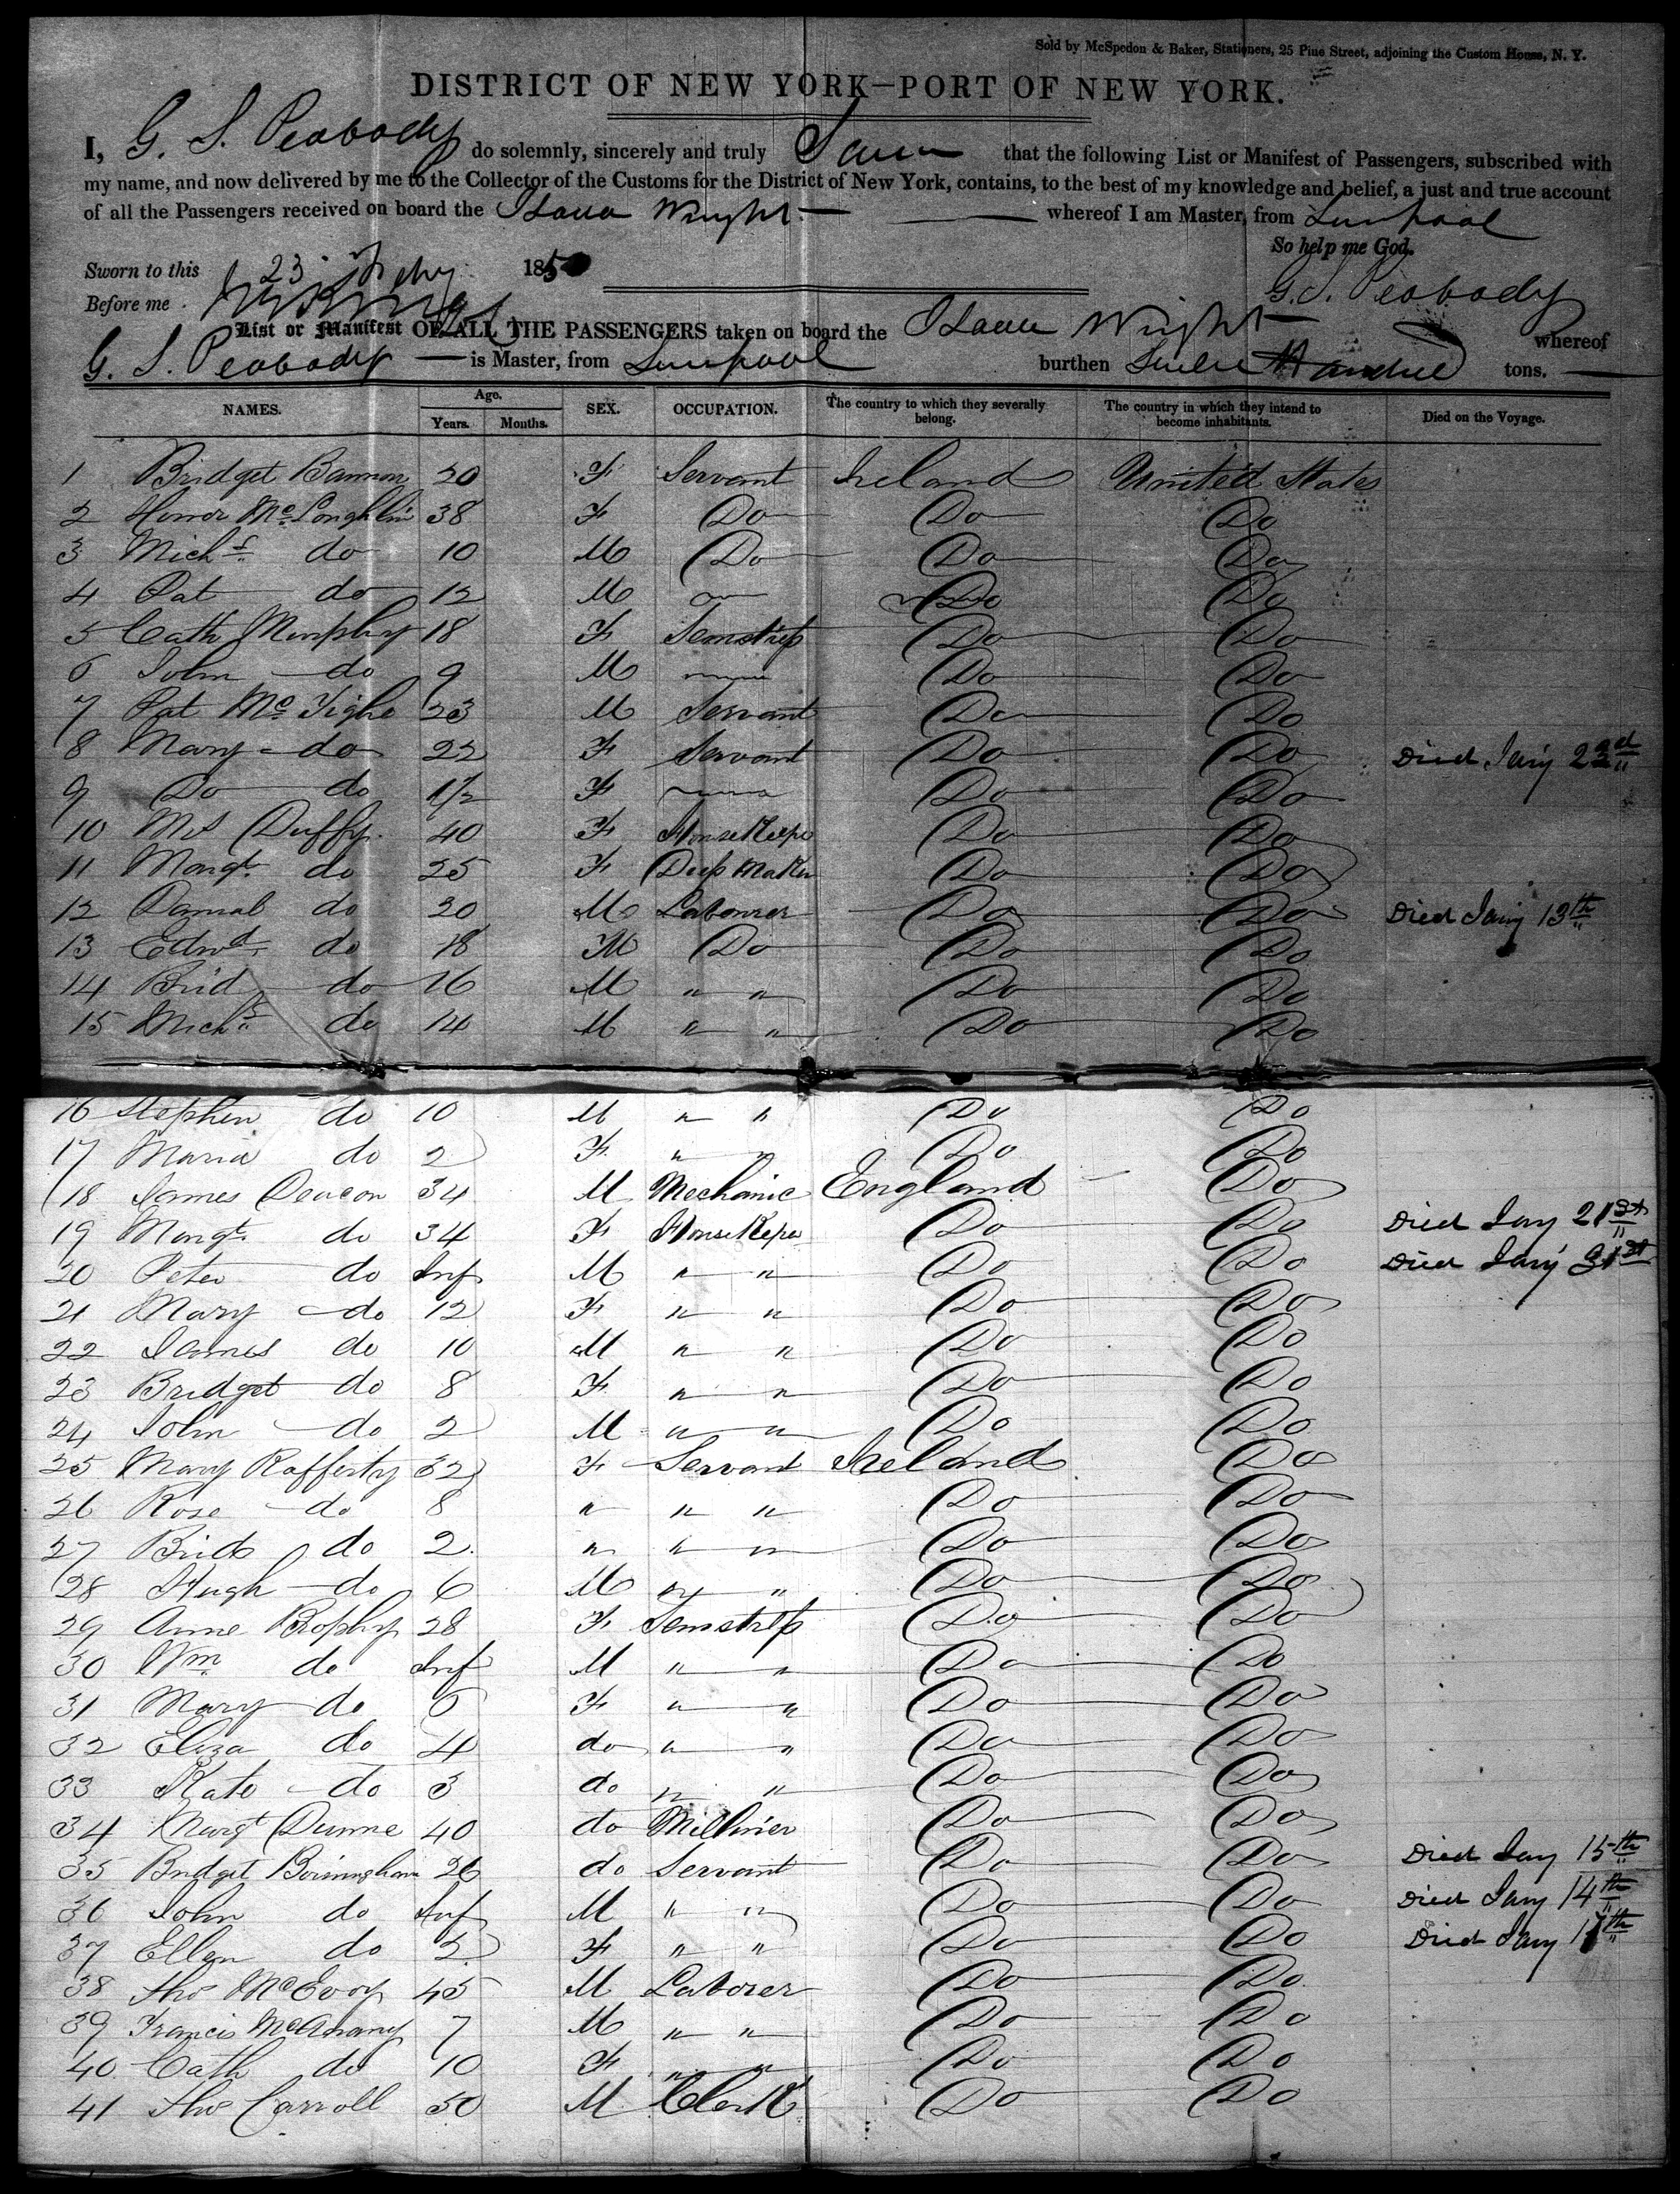 Sold by McSpedon & Baker, Stationers, 25 Pine Street, adjoining the Custom House, N. Y.
DISTRICT OF NEW YORK—PORT OF NEW YORK.
I, G. S. Peabody do solemnly, sincerely and truly Swear that the following List or Manifest of Passengers, subscribed with
my name, and now delivered by me to the Collector of the Customs for the District of New York, contains, to the best of my knowledge and belief, a just and true account
of all the Passengers received on board the Isaac Wright whereof I am Master, from Liverpool
So help me God.
Sworn to this 23 Feby 1850
G. S. Peabody
Before me
List or Manifest OF ALL THE PASSENGERS taken on board the Isaac Wright whereof
G. S. Peabody is Master, from Liverpool burthen Hundred tons.
NAMES. Age. Years. Months. SEX. OCCUPATION. The country to which they severally belong. The country in which they intend to become inhabitants. Died on the Voyage.
1 Bridget Bannon 20 F Servant Ireland United States
2 Honor Mc Loughlin 38 F Do Do Do
3 Michl do 10 M Do Do Do
4 Pat do 12 M Do Do
5 Cath Murphy 18 F Semstress Do Do
6 John do 9 M Do Do
7 Pat Mc Tighe 23 M Servant Do Do
8 Mary do 22 F Servant Do Do Died Jany 23rd
9 Do do 1/2 F Do Do
10 Mrs Duffy 40 F HouseKeeper Do Do
11 Margt do 25 F Dress Maker Do Do
12 Daniel do 20 M Labourer Do Do Died Jany 13th
13 Edwd do 18 M Do Do Do
14 Brid do 16 M " " Do Do
15 Michl do 14 M " " Do Do
16 Stephen do 10 M " " Do Do
17 Maria do 2 F " " Do Do
18 James Deacon 34 M Mechanic England Do
19 Margt do 34 F HouseKeper Do Do Died Jany 21st
20 Peter do Inf M " " Do Do Died Jany 31st
21 Mary do 12 F " " Do Do
22 James do 10 M " " Do Do
23 Bridget do 8 F " " Do Do
24 John do 2 M " " Do Do
25 Mary Rafferty 32 F Servant Ireland Do
26 Rose do 8 " " " Do Do
27 Brid do 2 " " " Do Do
28 Hugh do 6 M " " Do Do
29 Anne Brophy 28 F Semstress Do Do
30 Wm do Inf M " " Do Do
31 Mary do 6 F " " Do Do
32 Eliza do 4 do " " Do Do
33 Kate do 3 do " " Do Do
34 Margt Dunne 40 do Milliner Do Do
35 Bridget Birmingham 26 do Servant Do Do Died Jany 15th
36 John do Inf M " " Do Do Died Jany 14th
37 Ellen do 2 F " " Do Do Died Jany 17th
38 Thos McEvoy 45 M Laborer Do Do
39 Francis McAnany 7 M " " Do Do
40 Cath do 10 F " " Do Do
41 Thos Carroll 50 M Clerk Do Do